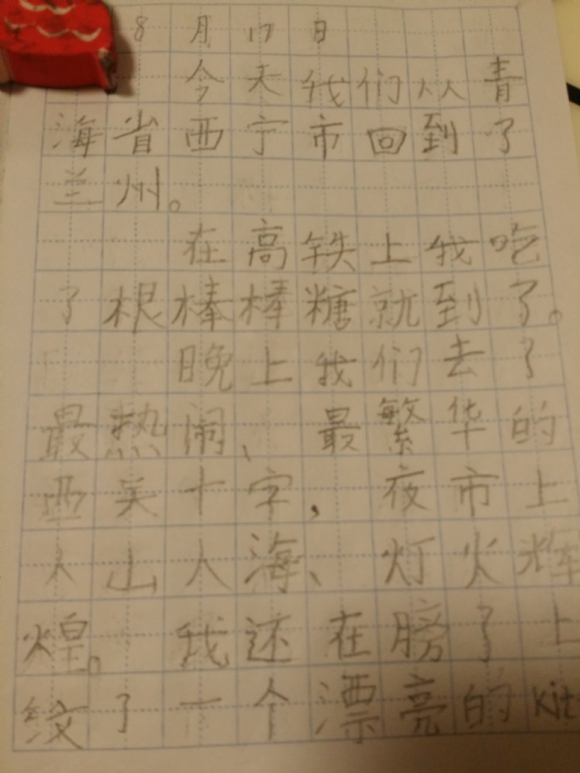 8月17日
今天我们从青
海省西宁市回到了
兰州。
在高铁上我吃
了根棒棒糖就到了。
晚上我们去了
最热闹、最繁华的
西关十字，夜市上
人山人海、灯火辉
煌。我还在膀了上
纹了一个漂亮的kit